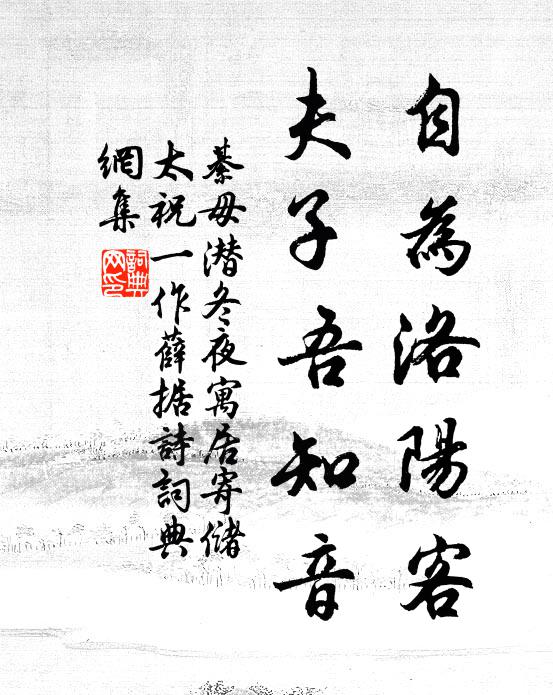 自為洛陽客
夫子吾知音
綦毋潛冬夜寓居寄儲
太祝一作薛据詩詞典
網集
詞典網印